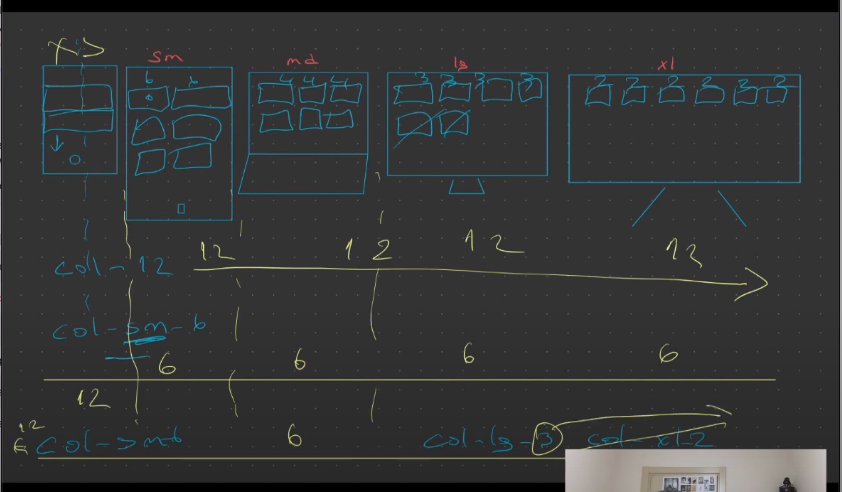 xs
sm
md
lg
xl
6 6
4 4 4
3 3 3 3
2 2 2 2 2 2
col-12 12 12 12 12
col-sm-6
6 6 6 6
12
12
6 col-sm-6 6 col-lg-3 col-xl-2